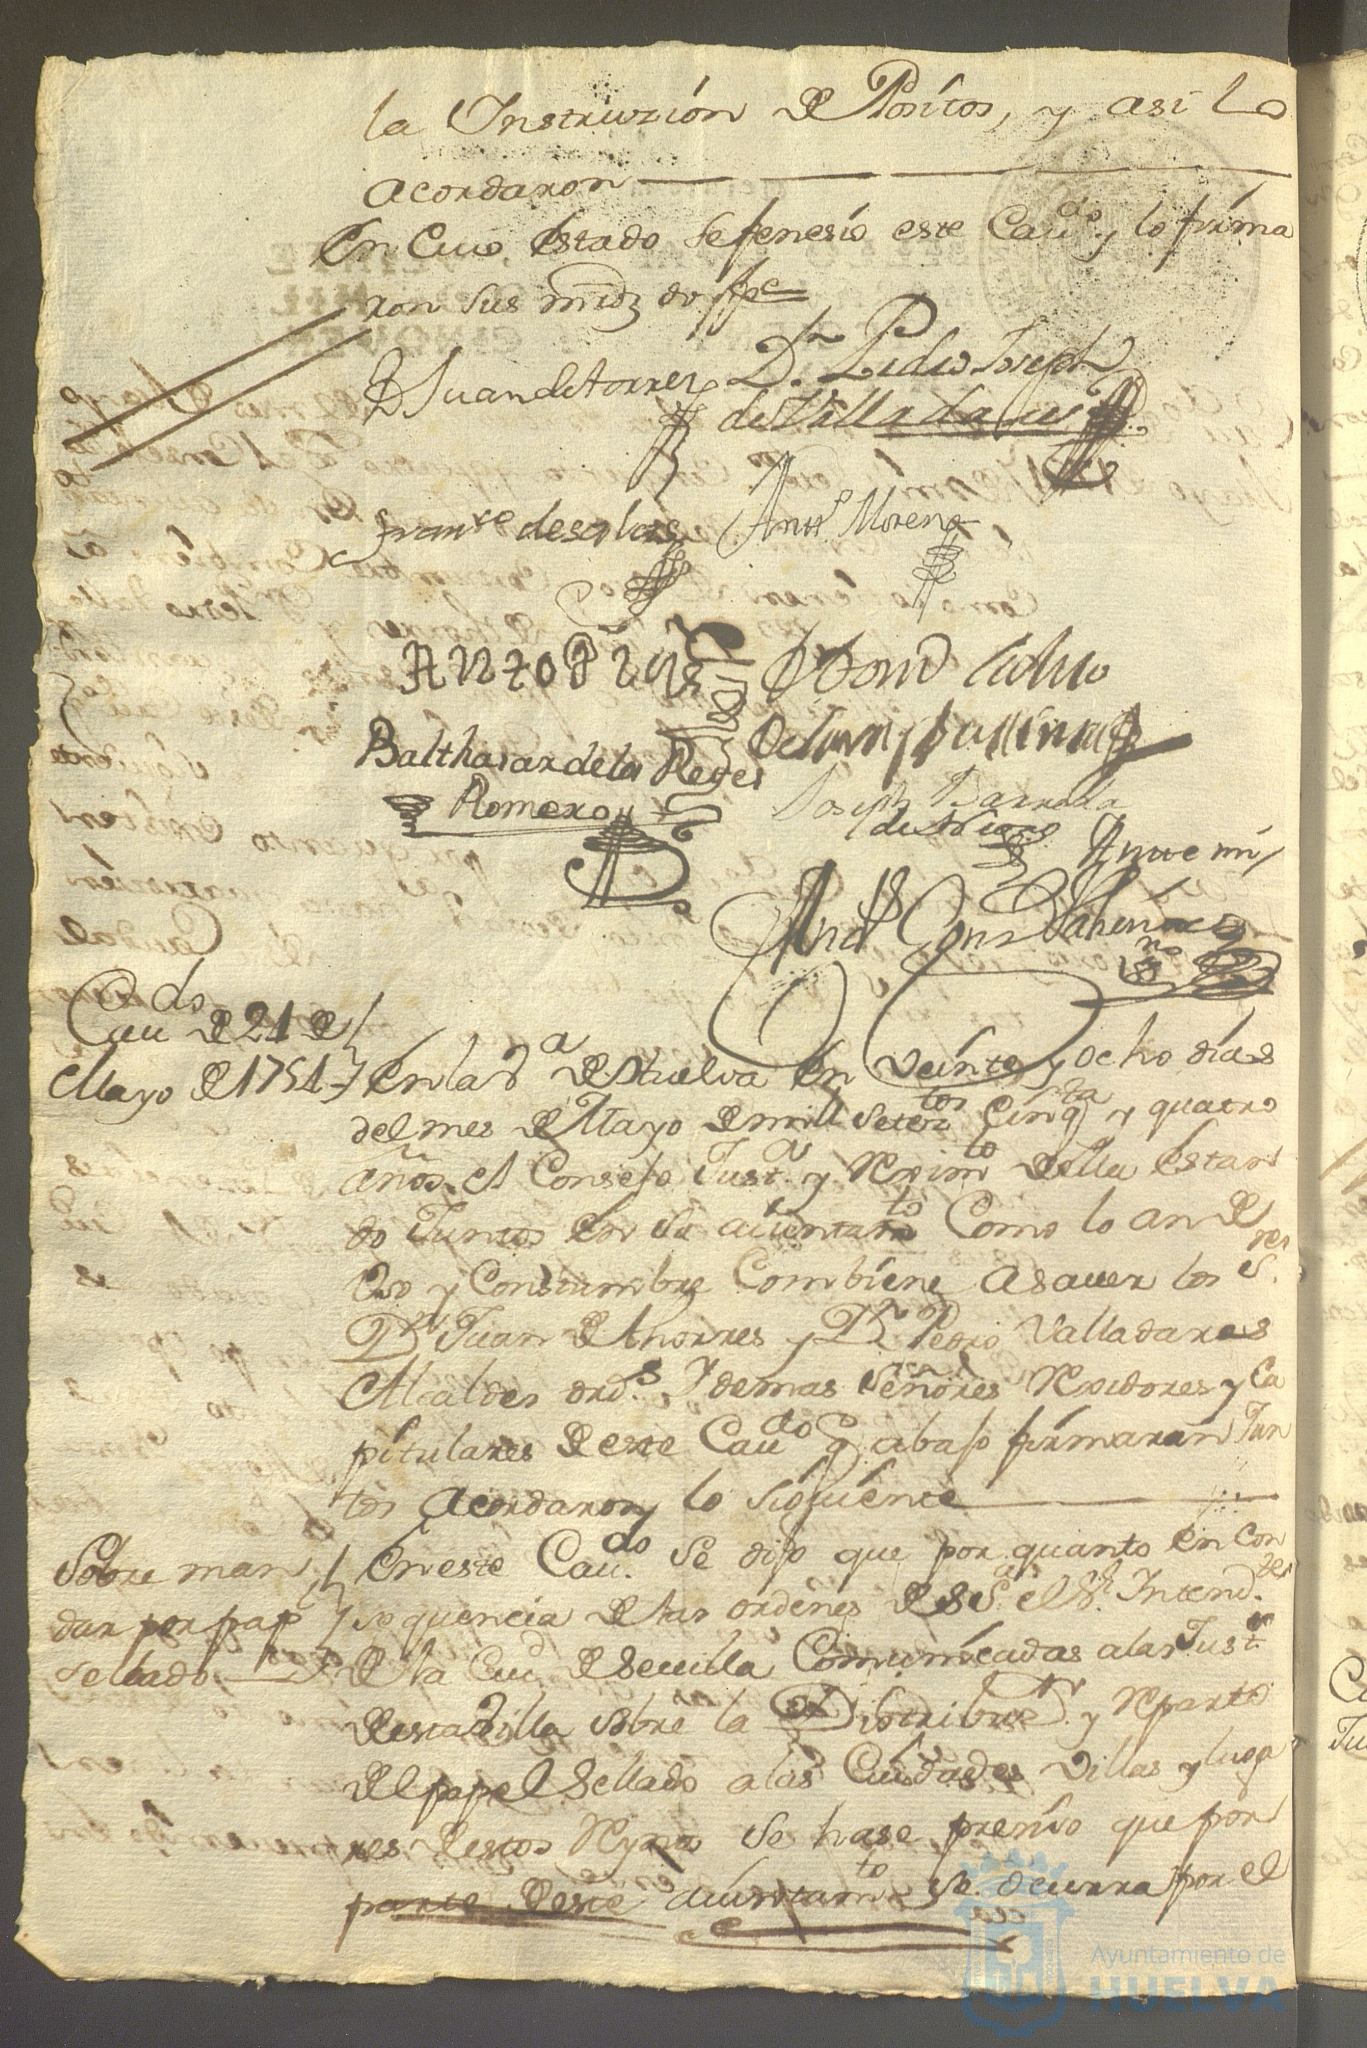 la Instruzión de Positos, y asi lo
acordaron
En Cuio estado se fenesió este Cavdo y lo firma
ron sus mrdz
Dn Juan de torres Dn Pedro Joseph
de Valladares
franco de salas Antto Moreno
Balthasar de los Reyes
Romero
Joseph Barreda
Ante mi
Cavdo de 21 de
Mayo de 1754
En la Va de Huelva en veinte y ocho dias
del mes de Mayo de mill seteztos cinqta y quatro
años el Consejo Justa y Reximto della estan
do Juntos en su aiuntamto Como lo an de
Uso y Constumbre Combiene a saver los Sres
Dn Juan de thorres y Dn Pedro Valladares
Alcaldes ords y demas señores Rexidores y Ca
pitulares de este Cavdo q abajo firmaran Jun
tos acordaron lo siguiente
Sobre man
dar por pap
sellado
En este Cavdo se dijo que por quanto en con
sequencia de las ordenes de Sa el Sr Intendte
de la Ciud de Sevilla Comunicadas a las Justas
desta Villa sobre la Distribuon y Repartto
del papel sellado a las Ciudades Villas y luga
res destos Reynos se hase presiso que por
parte deste aiuntamto se ocurra por el
Ayuntamiento de
HUELVA